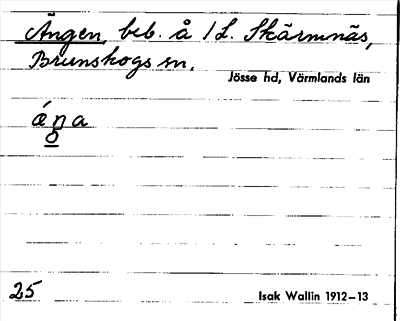 Ängen, beb. å 1 L. Skärmnäs,
Brunskogs sn.
Jösse hd, Värmlands län
25
Isak Wallin 1912–13